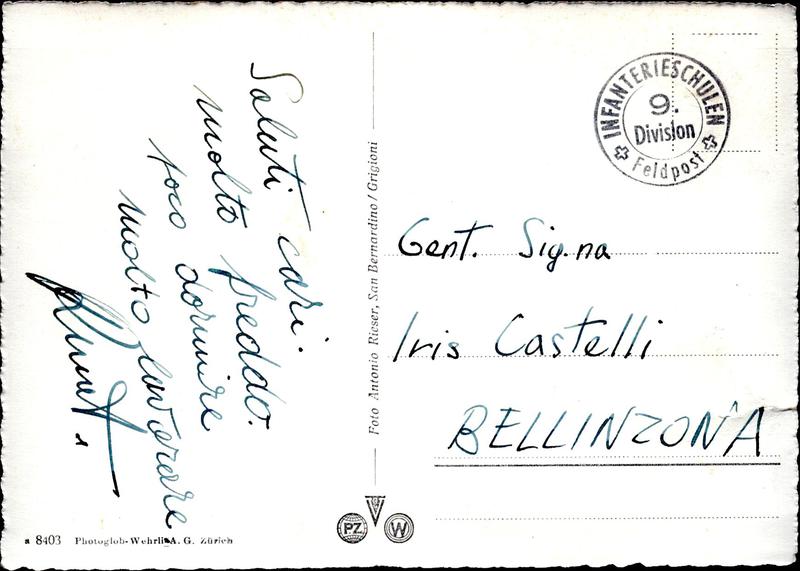 Saluti cari.
molto freddo.
poco dormire
molto lavorare
INFANTERIESCHULEN
9.
Division
Feldpost
Gent. Sig.na
Iris Castelli
BELLINZONA
Foto Antonio Rieser, San Bernardino / Grigioni
PZ
W
a 8403 Photoglob-Wehrli A. G. Zürich